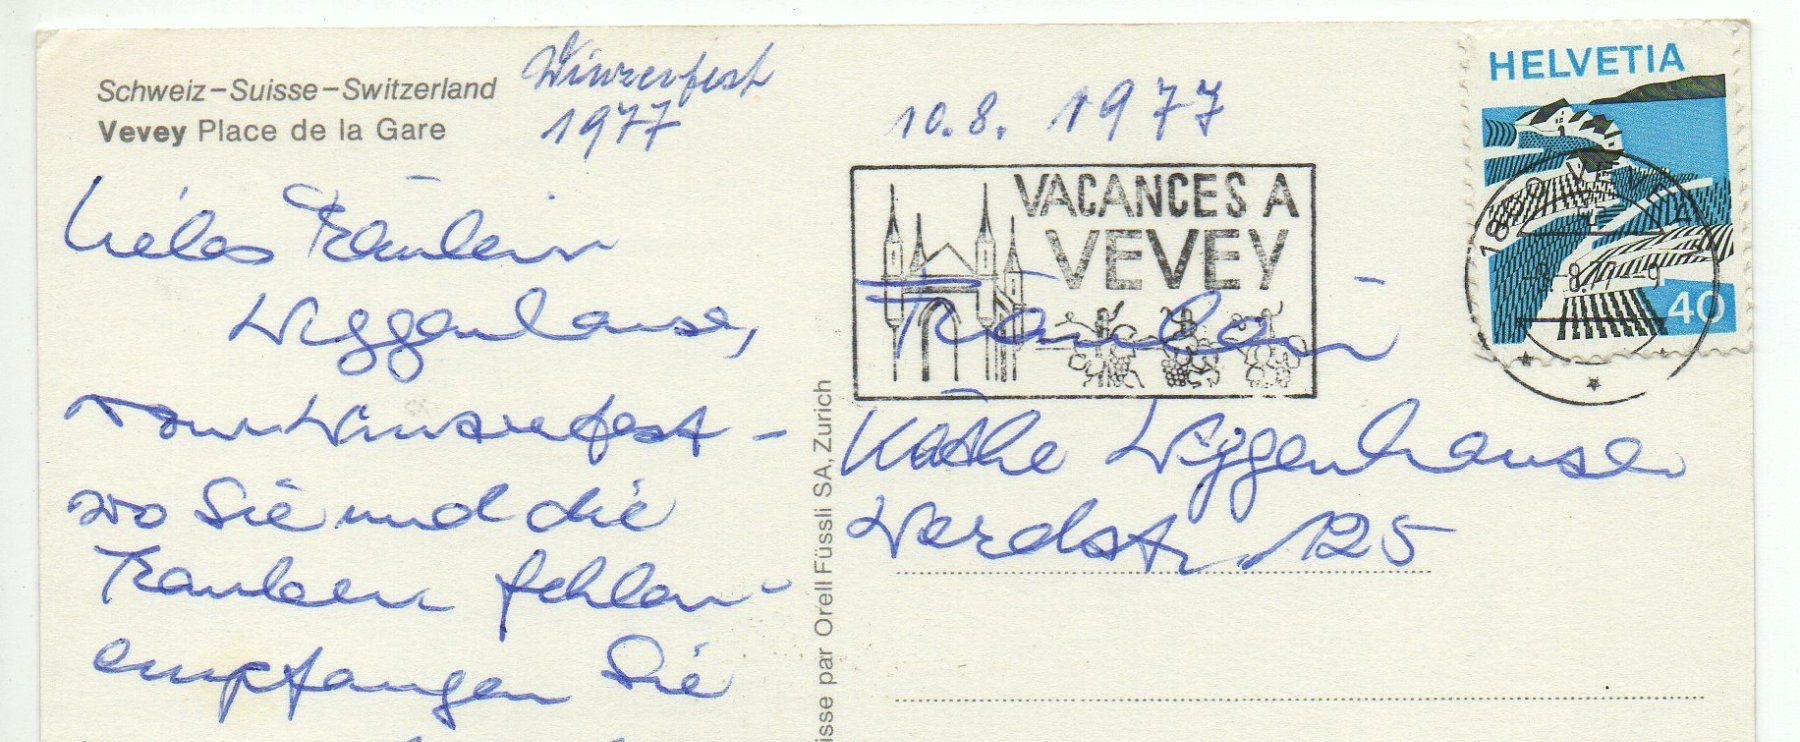 Schweiz–Suisse–Switzerland
Vevey Place de la Gare
Winzerfest
1977
10.8. 1977
HELVETIA
40
1800 VEVEY
8.77-9
VACANCES A
VEVEY
Liebes Fräulein
Wiggenhauser,
vom Winzerfest –
wo Sie und die
Trauben fehlen –
empfangen Sie
Fräulein
Käthe Wiggenhauser
Werdstr. 125
isse par Orell Füssli SA, Zurich